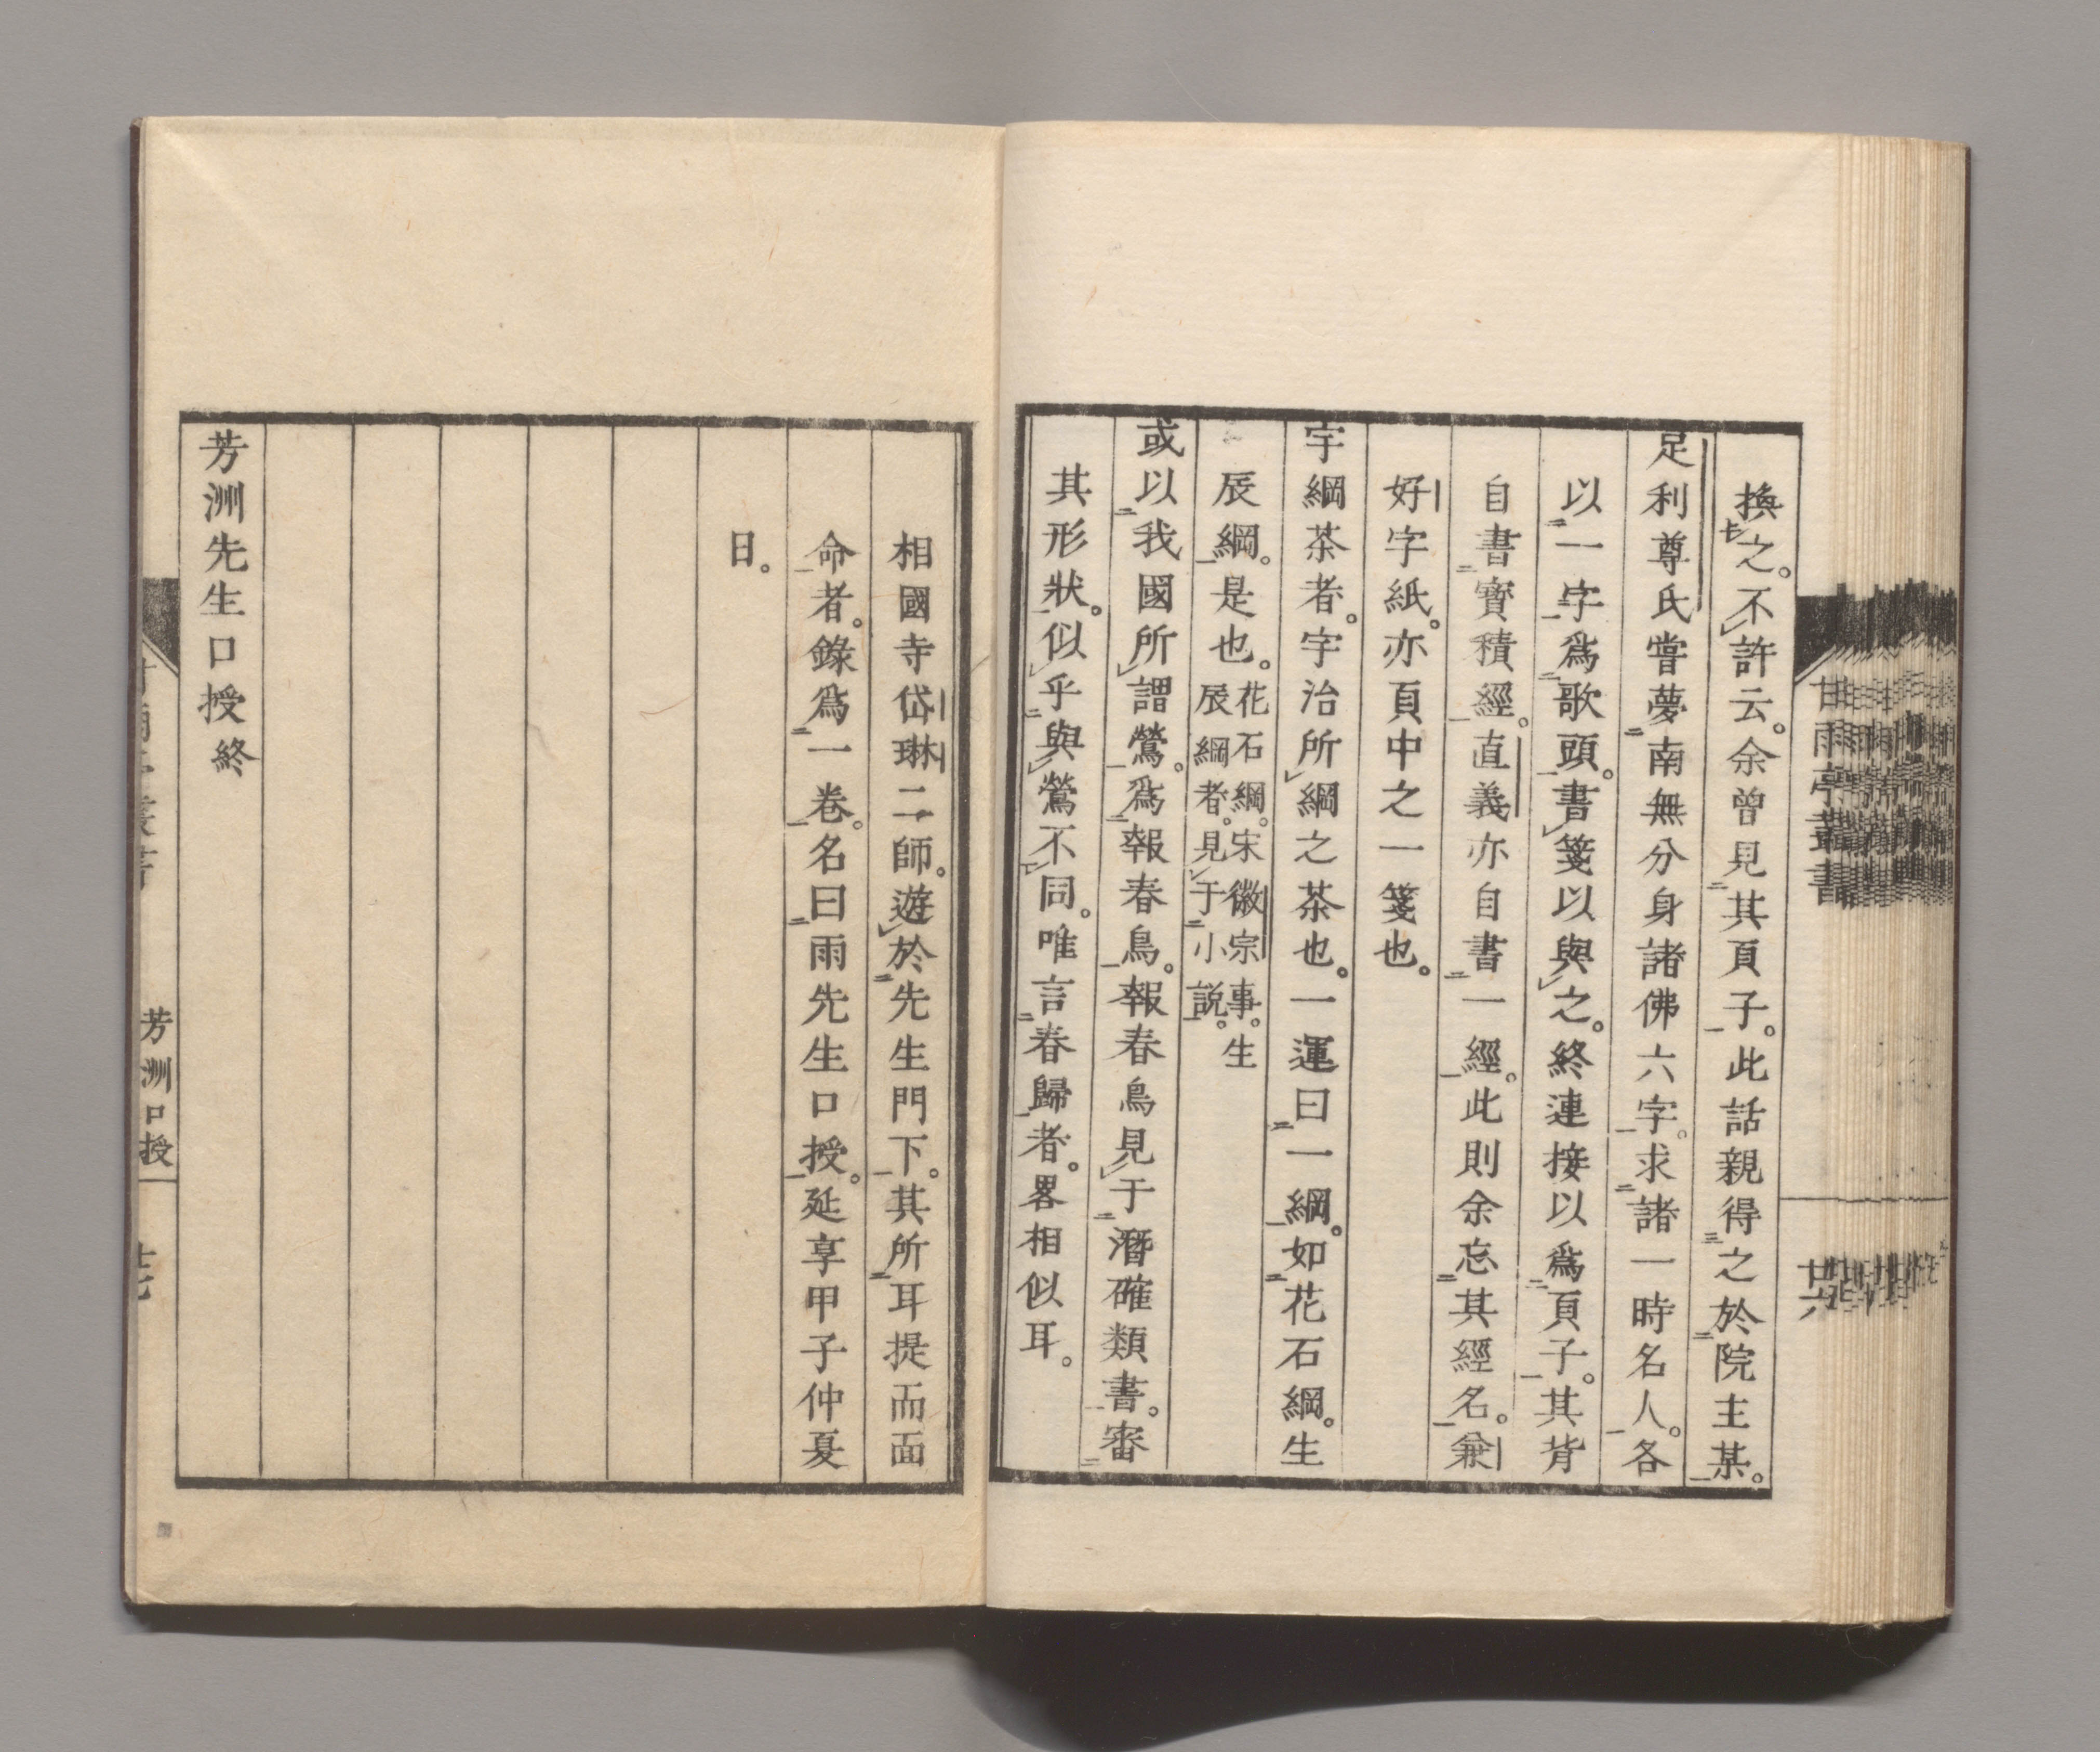 換之。不許云。余曾見其頁子。此話親得之於院主某。
足利尊氏嘗夢南無分身諸佛六字。求諸一時名人。各
以一字爲歌頭。書箋以與之。終連接以爲頁子。其背
自書寳積經。直義亦自書一經。此則余忘其經名。兼
好字紙。亦頁中之一箋也。
字綱茶者。字治所綱之茶也。一運曰一綱。如花石綱。生
辰綱。是也。花石綱。宋徽宗事。生
辰綱者。見于小説。
或以我國所謂鶯。爲報春鳥。報春鳥見于潛確類書。審
其形狀。似乎與鶯不同。唯言春歸者。畧相似耳。
甘雨亭叢書
廿六
相國寺岱琳二師。遊於先生門下。其所耳提而面
命者。錄爲一卷。名曰雨先生口授。延享甲子仲夏
日。
芳洲先生口授終
芳洲口授